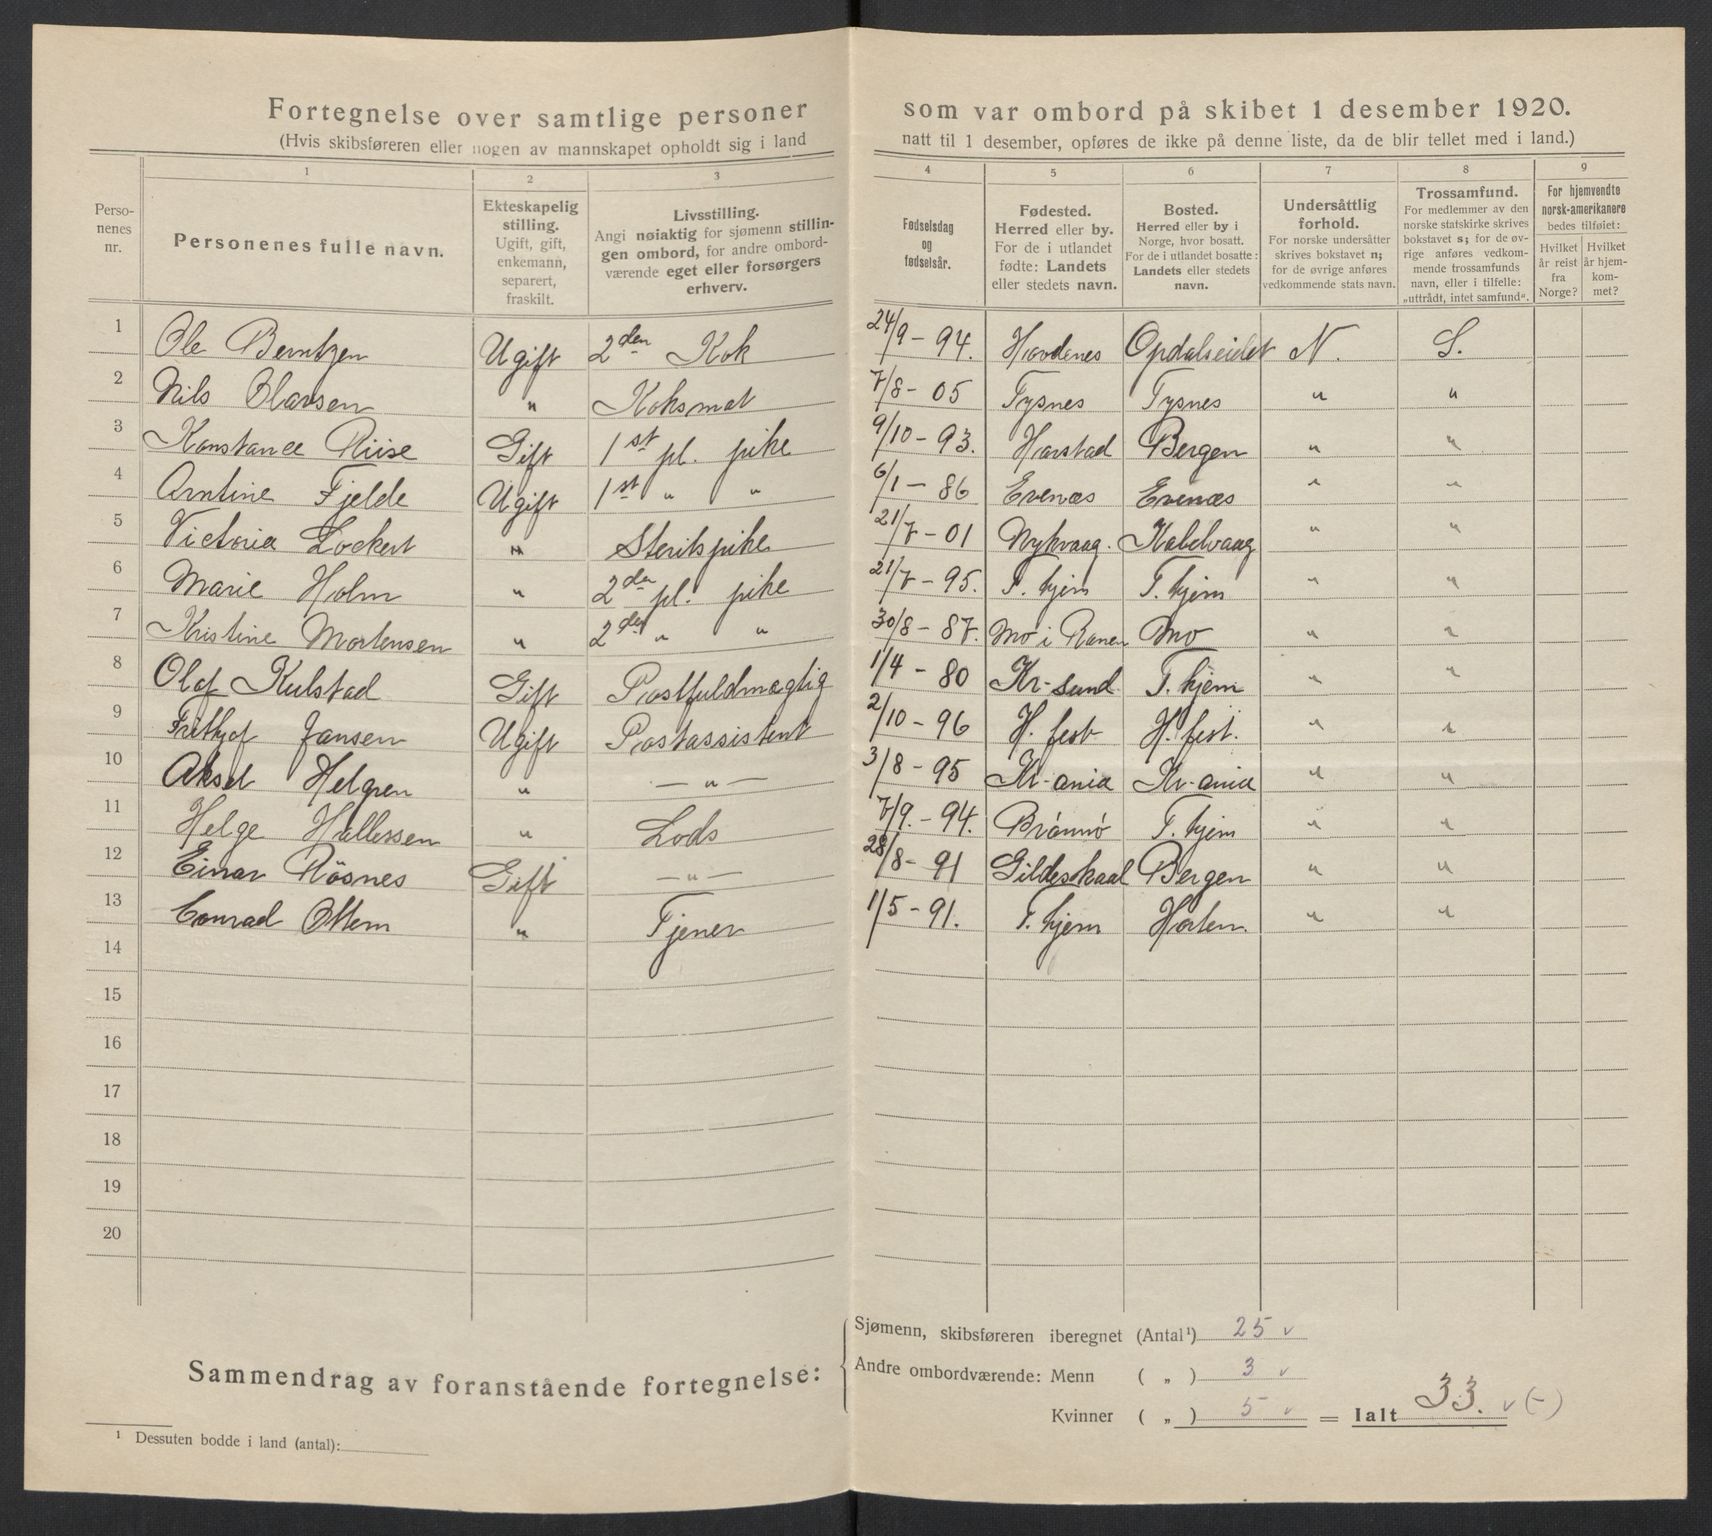 Fortegnelse over samtlige personer som var ombord på skibet 1 desember 1920.
(Hvis skibsføreren eller nogen av mannskapet opholdt sig i land natt til 1 desember, opføres de ikke på denne liste, da de blir tellet med i land.)
1 2 3 4 5 6 7 8 9
Perso-nenes nr.
Personenes fulle navn.
Ekteskapelig stilling. Ugift, gift, enkemann, separert, fraskilt.
Livsstilling. Angi nøiaktig for sjømenn stillin-gen ombord, for andre ombord-værende eget eller forsørgers erhverv.
Fødselsdag og fødselsår.
Fødested. Herred eller by. For de i utlandet fødte: Landets eller stedets navn.
Bosted. Herred eller by i Norge, hvor bosatt. For de i utlandet bosatte: Landets eller stedets navn.
Undersåttlig forhold. For norske undersåtter skrives bokstavet n; for de øvrige anføres vedkommende stats navn.
Trossamfund. For medlemmer av den norske statskirke skrives bokstavet s; for de øv-rige anføres vedkom-mende trossamfunds navn, eller i tilfelle: „uttrådt, intet samfund“.
For hjemvendte norsk-amerikanere bedes tilføiet: Hvilket år reist fra Norge? Hvilket år hjem-kom-met?
1 Ole Berntzen Ugift 2den Kok 24/9 - 94. Havdenes Opdalseidet N. S.
2 Nils Olavsen " Koksmat 7/8 - 05 Tysnes Tysnes " "
3 Konstance Riise Gift 1st pl. pike 9/10 - 93. Harstad Bergen " "
4 Arntine Fjelde Ugift 1st " " 6/1 - 86 Evenæs Evenæs " "
5 Victoria Lockert " Steriks pike 21/7 - 01 Nykvaag. Kabelvaag " "
6 Marie Holm " 2den pl. pike 21/7 - 95. T. hjem T. hjem " "
7 Kristine Mortensen " 2den " " 30/8 - 87. Mo i Ranen Mo " "
8 Olaf Kulstad Gift Postfuldmægtig 1/4 - 80 Kr-sund T. hjem " "
9 Frithjof Jansen Ugift Postassistent 2/10 - 96 H. fest H. fest. " "
10 Aksel Helgren " — " — 3/8 - 95 Kr-ania Kr-ania " "
11 Helge Hallessen " Lods 7/9. - 94. Brønnø T. hjem " "
12 Einar Røsnes Gift — " — 28/8 - 91 Gildeskaal Bergen " "
13 Conrad Ottem " Tjener 1/5 - 91. T. hjem Horten. " "
14
15
16
17
18
19
20
Sammendrag av foranstående fortegnelse:
Sjømenn, skibsføreren iberegnet (Antal¹) 25 v
Andre ombordværende: Menn ( „ ) 3 v
Kvinner ( „ ) 5 v = Ialt 33. v (-)
¹ Dessuten bodde i land (antal):